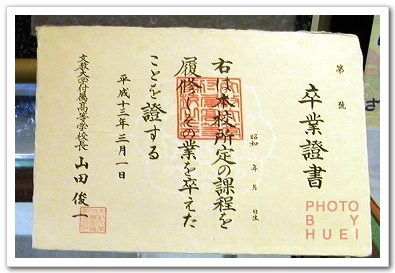 第 號
卒業證書
昭和 年 月 日生
右は本校所定の課程を
履修しその業を卒えた
ことを證する
平成十三年三月一日
文教大学付属高等学校長 山田俊一
PHOTO
BY
HUEI